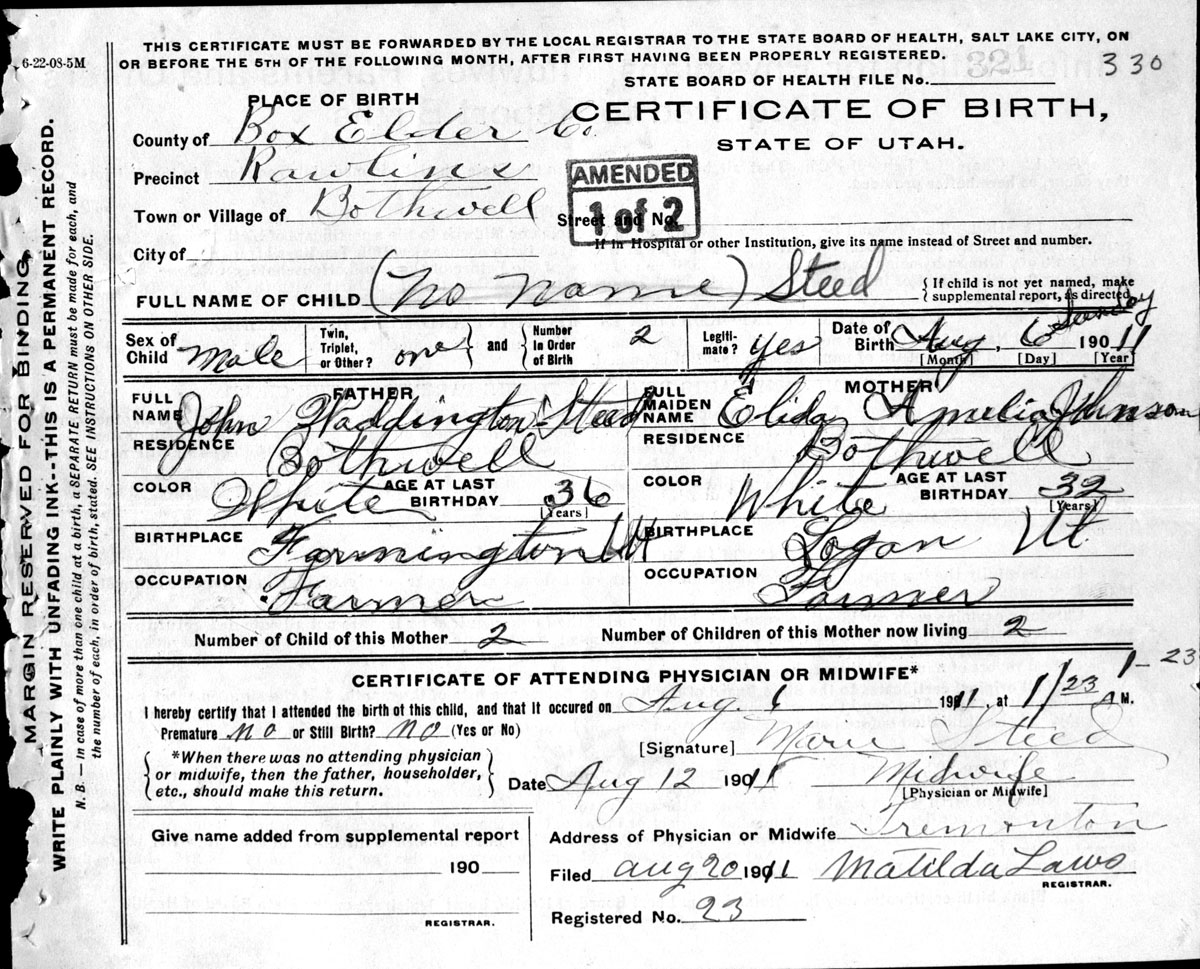 THIS CERTIFICATE MUST BE FORWARDED BY THE LOCAL REGISTRAR TO THE STATE BOARD OF HEALTH, SALT LAKE CITY, ON
OR BEFORE THE 5TH OF THE FOLLOWING MONTH, AFTER FIRST HAVING BEEN PROPERLY REGISTERED.
6-22-08-5M
STATE BOARD OF HEALTH FILE No. 321 330
PLACE OF BIRTH
CERTIFICATE OF BIRTH,
STATE OF UTAH.
County of Box Elder Co.
Precinct Rawlins
AMENDED
1 of 2
Town or Village of Bothwell Street and No.
If in Hospital or other Institution, give its name instead of Street and number.
City of
FULL NAME OF CHILD (No Name) Steed
{ If child is not yet named, make
supplemental report, as directed
Sex of Child Male
Twin, Triplet, or Other? one } and { Number in Order of Birth 2
Legiti-mate? yes
Date of Birth Aug. 6 Sunday 1911
[Month] [Day] [Year]
FATHER
FULL NAME John Waddington Steed
RESIDENCE Bothwell
COLOR White AGE AT LAST BIRTHDAY 36 [Years]
BIRTHPLACE Farmington Ut
OCCUPATION Farmer
MOTHER
FULL MAIDEN NAME Elida Amelia Johnson
RESIDENCE Bothwell
COLOR White AGE AT LAST BIRTHDAY 32 [Years]
BIRTHPLACE Logan Ut.
OCCUPATION Farmer
Number of Child of this Mother 2 Number of Children of this Mother now living 2
CERTIFICATE OF ATTENDING PHYSICIAN OR MIDWIFE*
1-23
I hereby certify that I attended the birth of this child, and that it occured on Aug. 6 1911, at 11/23 A M.
Premature no or Still Birth? no (Yes or No)
[Signature] Marie Steed
{ *When there was no attending physician
or midwife, then the father, householder,
etc., should make this return. }
Date Aug 12 1911 Midwife
[Physician or Midwife]
Give name added from supplemental report
190
REGISTRAR.
Address of Physician or Midwife Tremonton
Filed Aug 20 1911 Matilda Laws
REGISTRAR.
Registered No. 23
MARGIN RESERVED FOR BINDING.
WRITE PLAINLY WITH UNFADING INK--THIS IS A PERMANENT RECORD.
N. B.—In case of more than one child at a birth, a SEPARATE RETURN must be made for each, and
the number of each, in order of birth, stated. SEE INSTRUCTIONS ON OTHER SIDE.